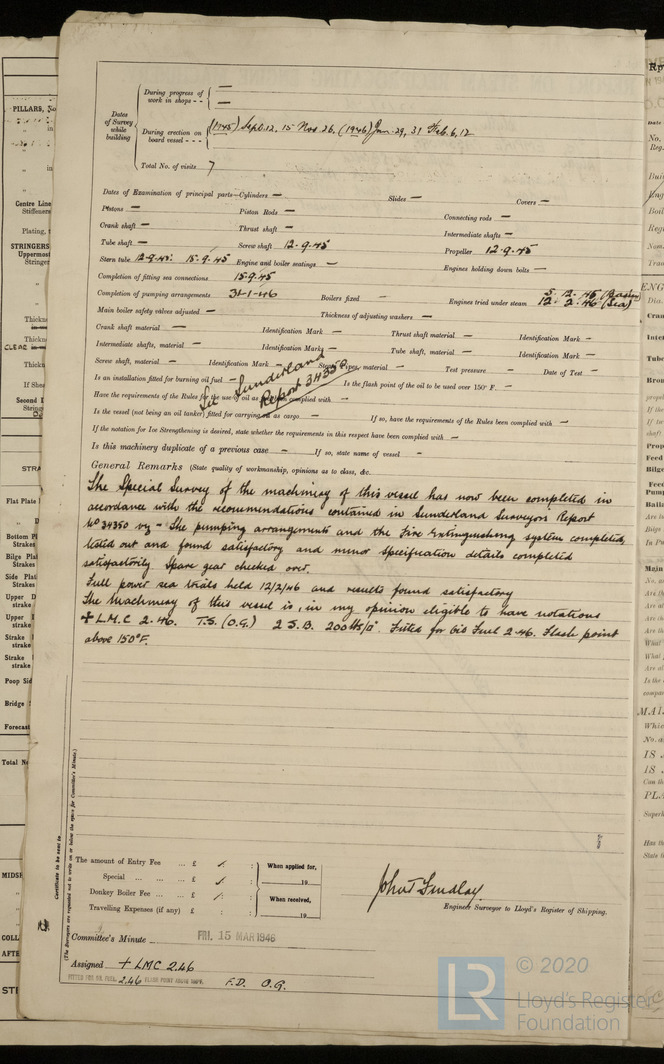 Dates of Survey while building
During progress of work in shops - - —
During erection on board vessel - - - (1945) Sept. 12, 15 Nov 26, (1946) Jan. 29, 31 Feb. 6, 12
Total No. of visits 7
Dates of Examination of principal parts—Cylinders — Slides — Covers —
Pistons — Piston Rods — Connecting rods —
Crank shaft — Thrust shaft — Intermediate shafts —
Tube shaft — Screw shaft 12.9.45 Propeller 12.9.45
Stern tube 12.9.45: 15.9.45 Engine and boiler seatings — Engines holding down bolts —
Completion of fitting sea connections 15.9.45
Completion of pumping arrangements 31-1-46 Boilers fixed — Engines tried under steam 5.12.45 (Basin) 12.2.46 (Sea)
Main boiler safety valves adjusted — Thickness of adjusting washers —
Crank shaft material — Identification Mark — Thrust shaft material — Identification Mark —
Intermediate shafts, material — Identification Marks — Tube shaft, material — Identification Mark —
Screw shaft, material — Identification Mark — Steam Pipes, material — Test pressure — Date of Test —
See Sunderland Report 34350
Is an installation fitted for burning oil fuel — Is the flash point of the oil to be used over 150° F. —
Have the requirements of the Rules for the use of oil as fuel been complied with —
Is the vessel (not being an oil tanker) fitted for carrying oil as cargo — If so, have the requirements of the Rules been complied with —
If the notation for Ice Strengthening is desired, state whether the requirements in this respect have been complied with —
Is this machinery duplicate of a previous case — If so, state name of vessel —
General Remarks (State quality of workmanship, opinions as to class, &c.
The Special Survey of the machinery of this vessel has now been completed in
accordance with the recommendations contained in Sunderland Surveyors Report
No 34350 viz - The pumping arrangements and the Fire Extinguishing system completed,
tested out and found satisfactory and minor specification details completed
satisfactorily Spare gear checked over.
Full power sea trials held 12/2/46 and results found satisfactory
The Machinery of this vessel is, in my opinion eligible to have notations
+ L.M.C 2.46. T.S. (O.G.) 2 S.B. 200 lbs/□" Fitted for Oil Fuel 2.46. Flash point
above 150°F.
Certificate to be sent to
(The Surveyors are requested not to write on or below the space for Committee's Minute.)
The amount of Entry Fee ... £ : : When applied for,
Special ... ... ... £ : : 19
Donkey Boiler Fee ... £ : : When received,
Travelling Expenses (if any) £ : : 19
John T Findlay
Engineer Surveyor to Lloyd's Register of Shipping.
Committee's Minute FRI. 15 MAR 1946
Assigned + LMC 2.46
FITTED FOR OIL FUEL 2.46 FLASH POINT ABOVE 150°F. F.D. O.G.
LR
© 2020
Lloyd's Register
Foundation
PILLARS, No
Centre Line
Stiffeners
Plating,
STRINGERS
Uppermost
Stringer
CLEAR
STRA
Flat Plate
Bottom Pl
Strakes
Bilge Plat
Strakes
Side Plat
Strakes
Upper D
strake
Strake
Poop Sid
Bridge
Forecast
Total N
MIDSH
COLL
AFTE
STI